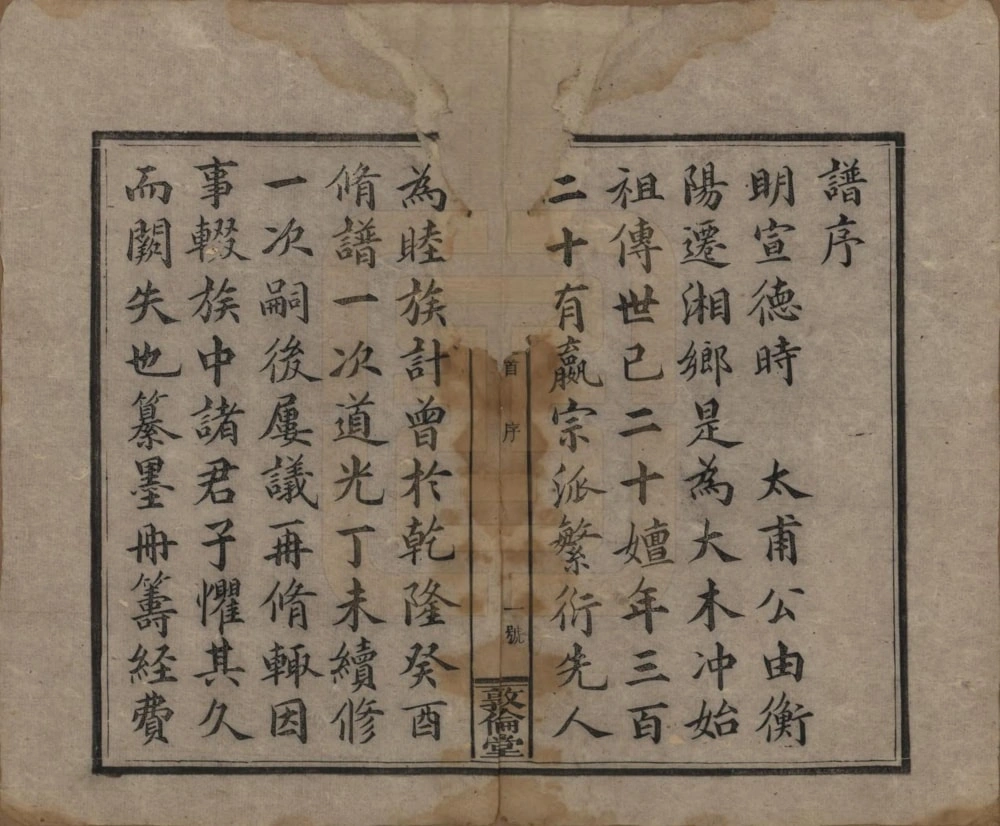 譜序
明宣德時　太甫公由衡
陽遷湘鄉是為大木冲始
祖傳世已二十嬗年三百
二十有贏宗派繁衍先人
首
序
一號
敦倫堂
為睦族計曾於乾隆癸酉
脩譜一次道光丁未續修
一次嗣後屢議再脩輙因
事輟族中諸君子懼其久
而闕失也纂墨冊籌経費